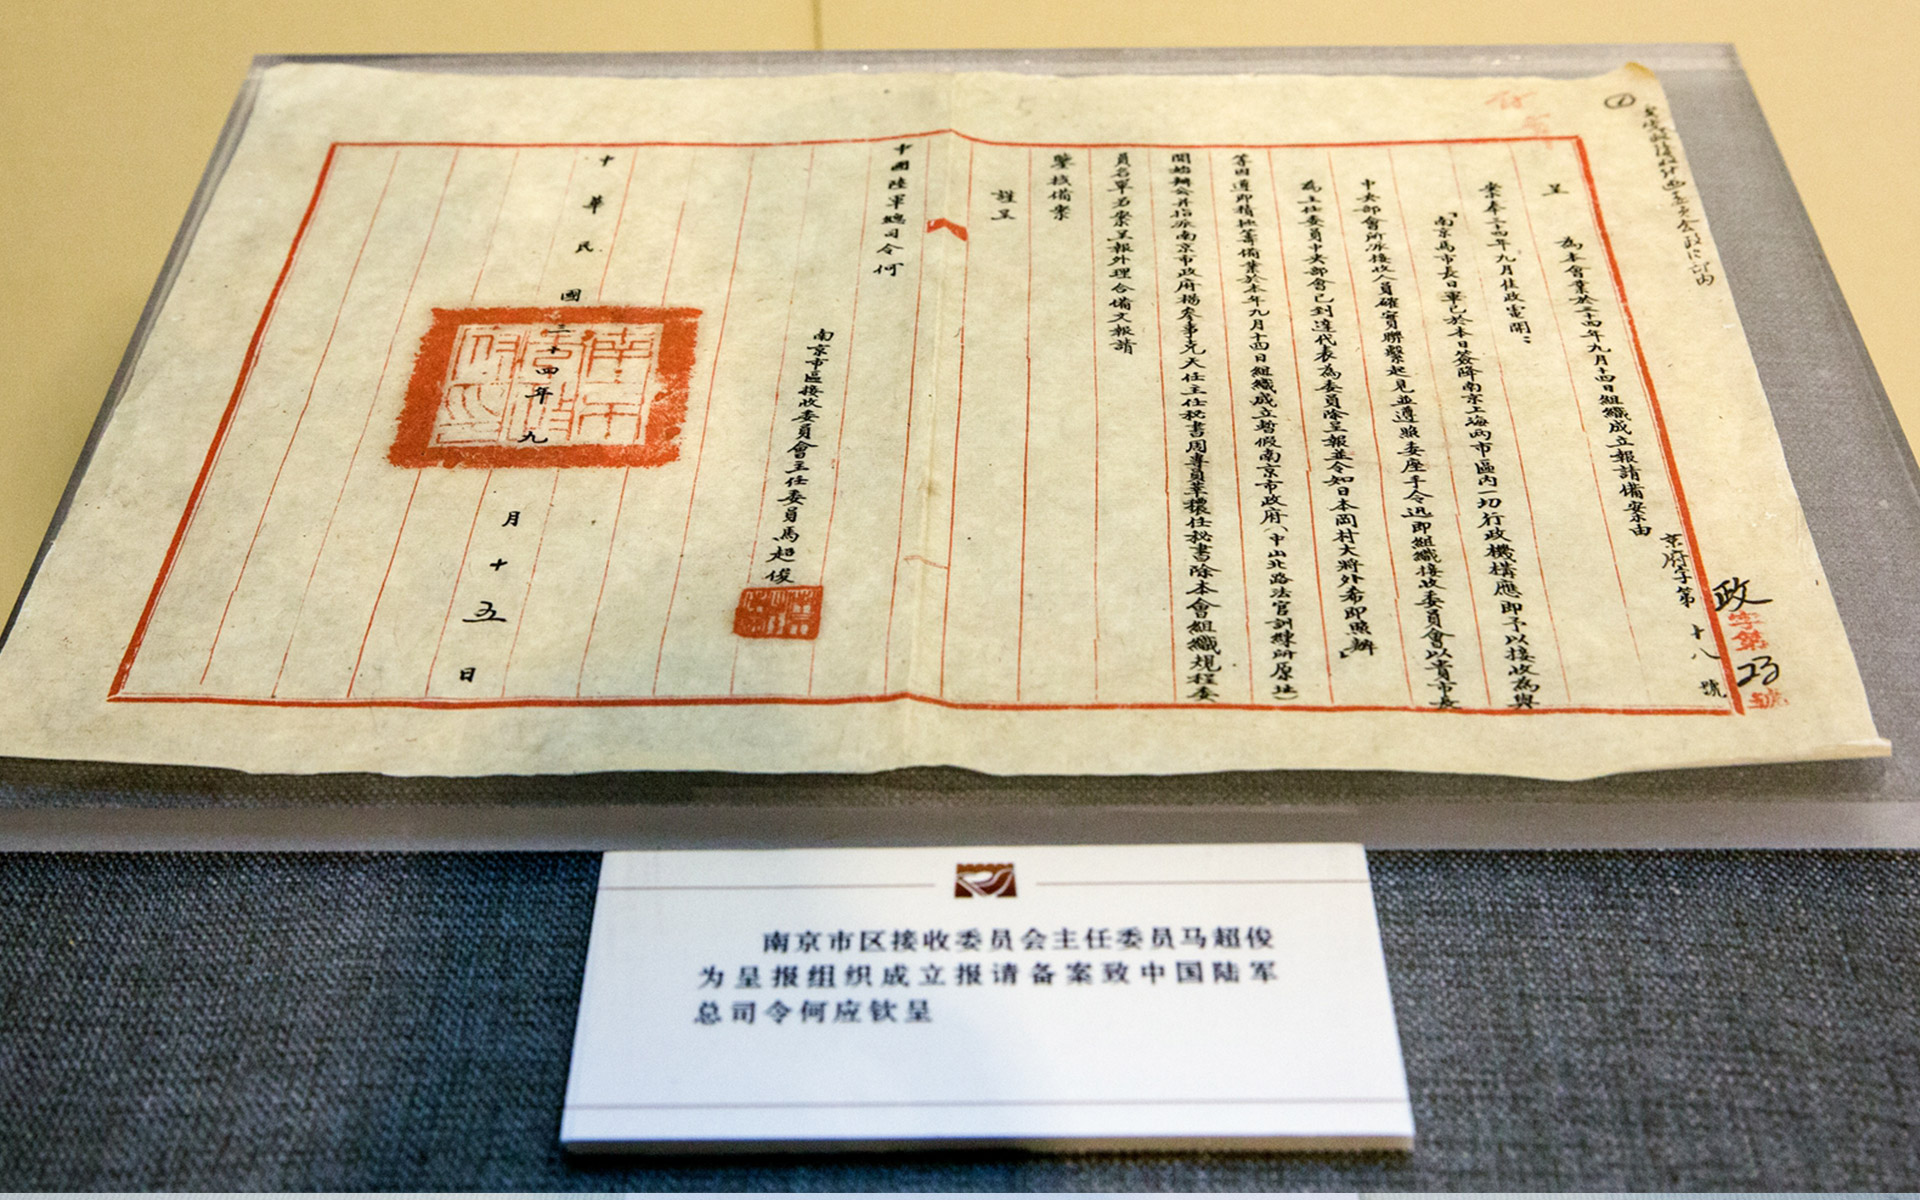 呈
為本會業於三十四年九月十四日組織成立報請備案由
京府字第十八號
政字第23號
案奉三十四年九月佳政電開：
「南京馬市長日軍已於本日簽降南京上海兩市區內一切行政機構應即予以接收為與
中央部會所派接收人員確實聯繫起見並遵照委座手令迅即組織接收委員會以貴市長
為主任委員中央部會已到達代表為委員除呈報並令知日本岡村大將外希即照辦」
等因遵即積極籌備業於本年九月十四日組織成立暫假南京市政府（中山北路法官訓練所原址）
開始辦公并指派南京市政府楊參事克天任主任秘書周專員革懷任秘書除本會組織規程委
員名單另案呈報外理合備文報請
鑒核備案
謹呈
中國陸軍總司令何
南京市區接收委員會主任委員馬超俊
中華民國三十四年九月十五日
南京市区接收委员会主任委员马超俊
为呈报组织成立报请备案致中国陆军
总司令何应钦呈